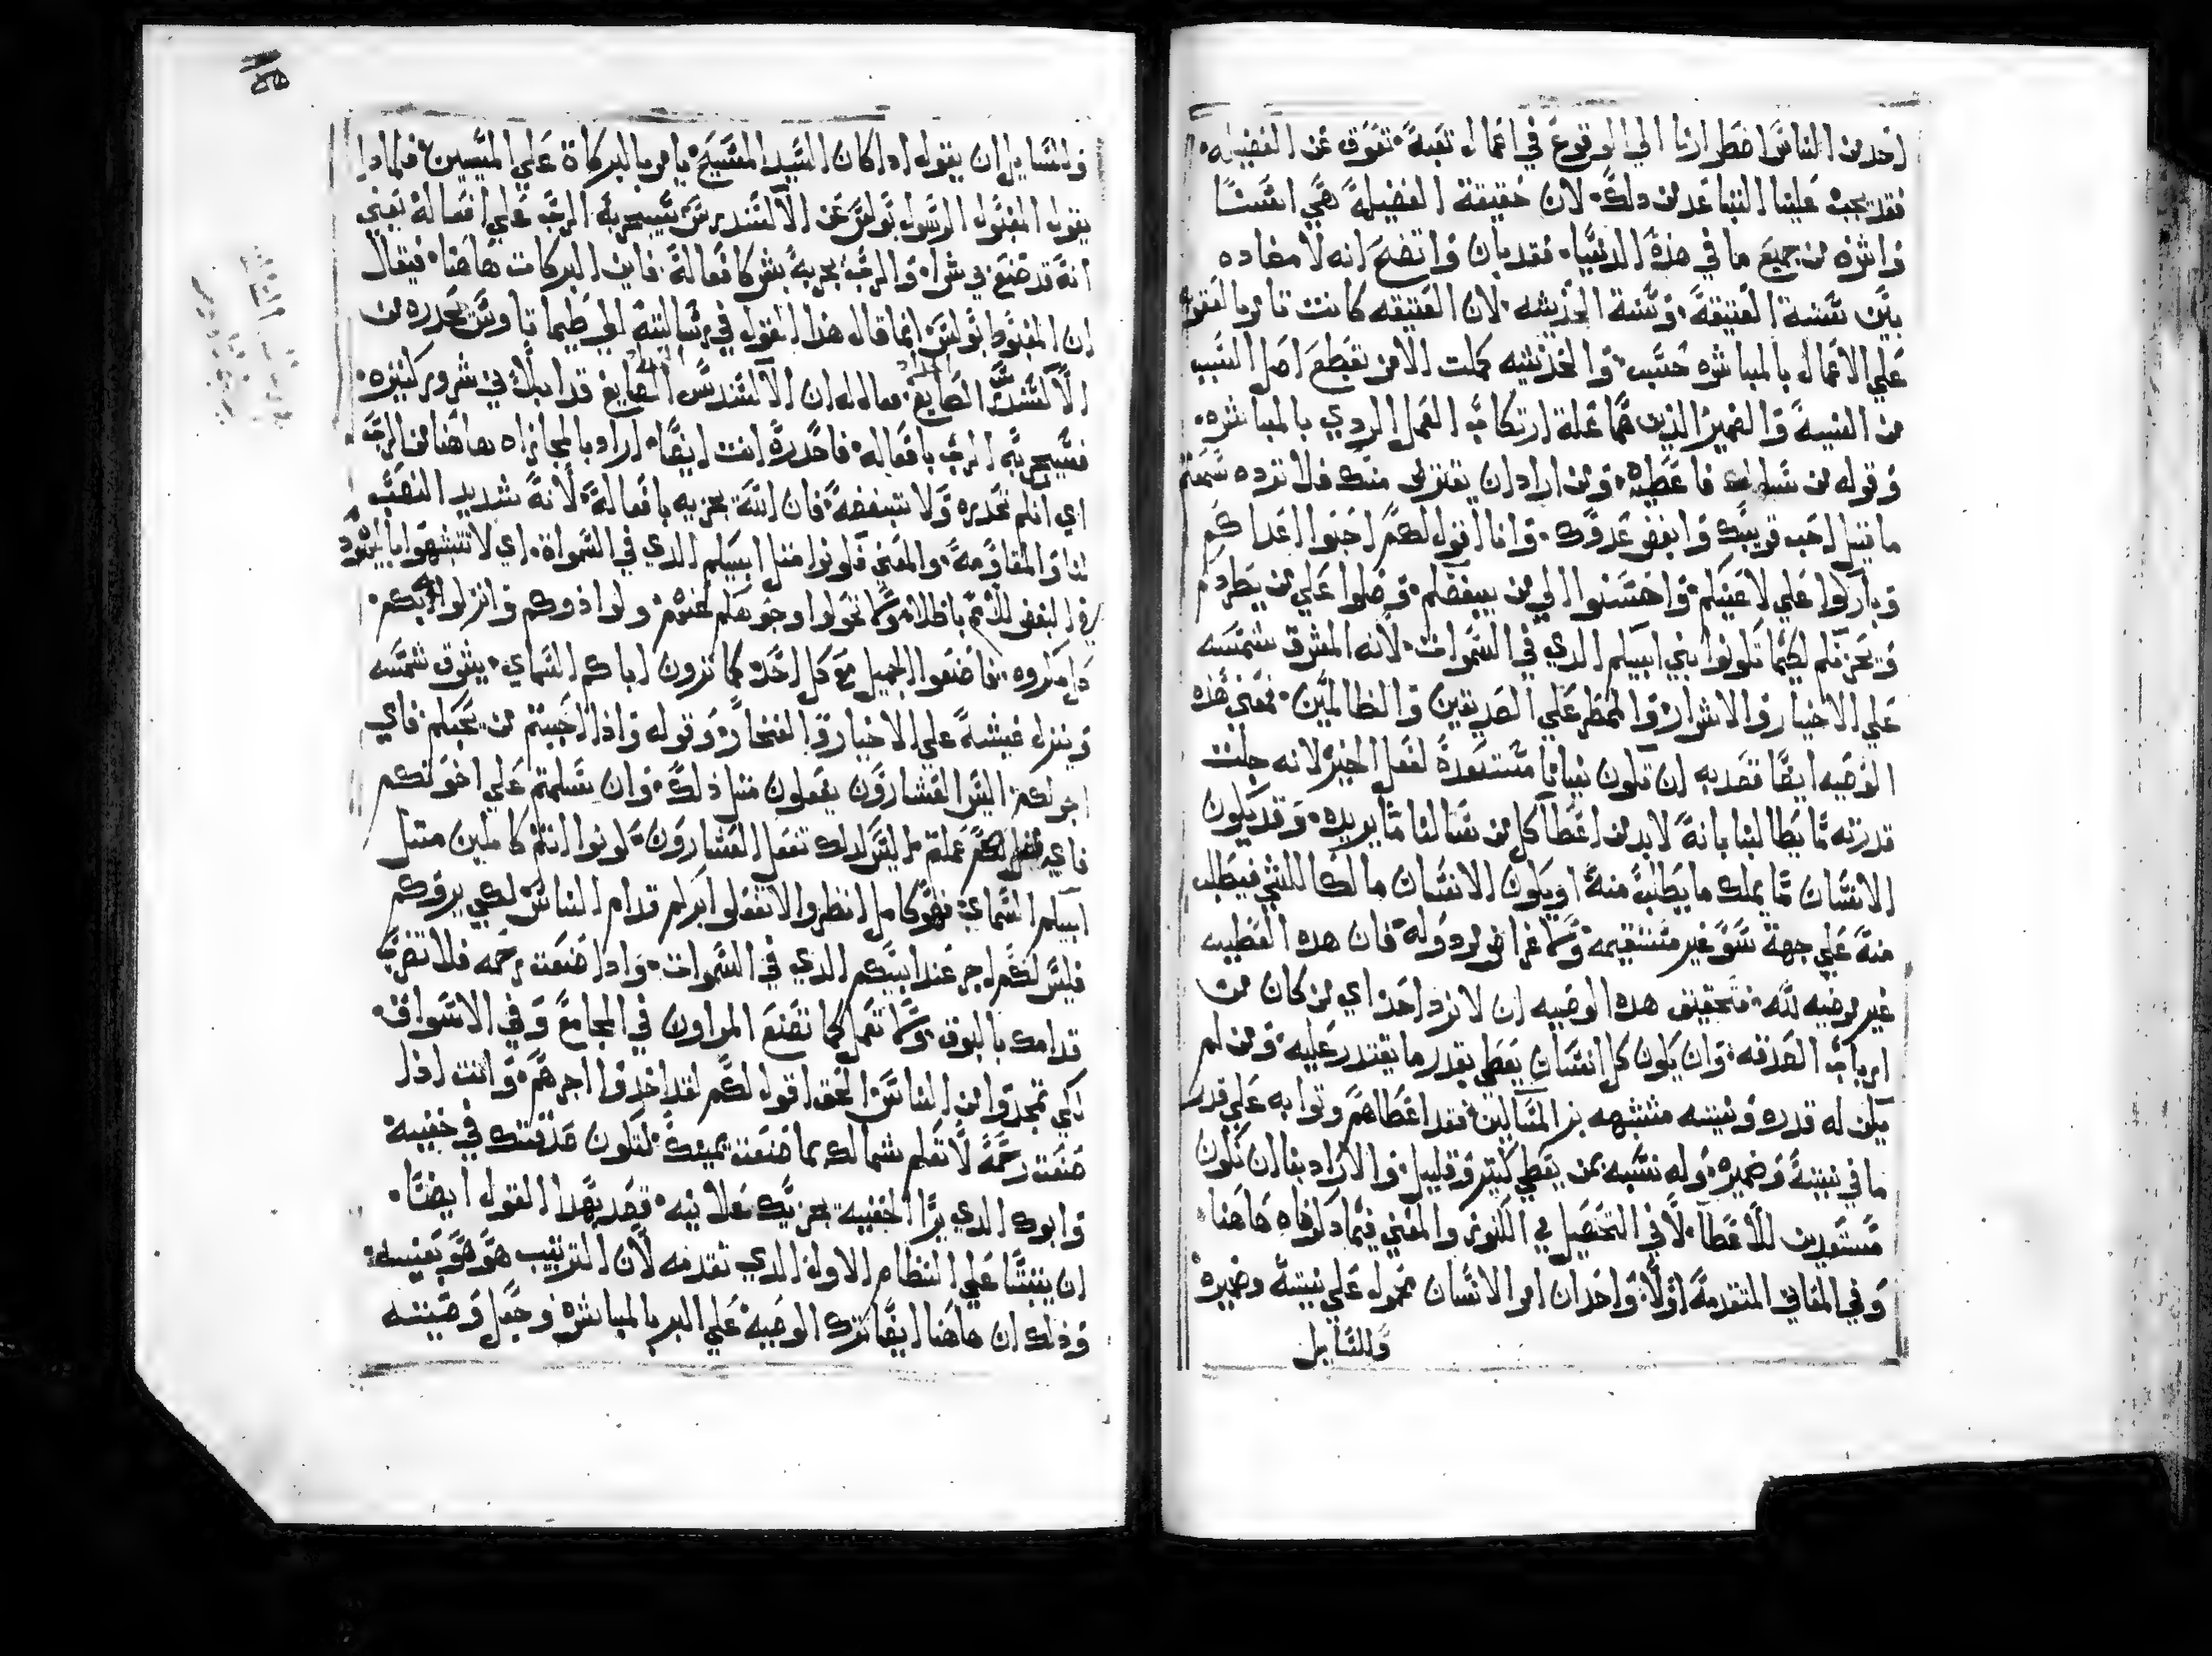 احد من الناس اضطرارنا الي الوقوع في اعمال تعبة تعوق عن الفضيله
فقد يجب علينا التباعد من دلك لان حقيقة الفضيلة هي
واثره من جميع ما في هذه الدنيا فقد بان واتضح انه لا مضاده
بين سنة العتيقة وسنة الحديثه لان العتيقه كانت تامر بالعقوبة
علي الاعمال بالمباشره حسب والحديثيه كملت الامر بقطع اصل السبب
من النية والضمير الذين هما علة ارتكاب العمل الردي بالمباشره
وقوله من سالك فاعطيه ومن اراد ان يقترض منك فلا ترده سمعتم
ما قيل احب قريبك وابغض عدوك وانا اقول لكم احبوا اعداكم
وباركوا علي لاعنيكم واحسنوا الي من يبغضكم وصلوا علي من يطردكم
ويحزنكم لكيما تكونوا بني ابيكم الدي في السموات لانه المشرق شمسه
علي الاخيار والاشرار والممطر علي الصديقين والظالمين فمعني هذه
الوصيه ايضا قصد به ان تكون نياتنا مستعدة لفعل الخير لانه جلت
قدرته ما يطالبنا بانه لابد من اعطا كل من سالنا ما يريده وقد يكون
الانسان ما يملك ما يطلب منه او يكون الانسان مالكا للشي فيطلب
منه علي جهة سو غير مستقيمه ولاغراض مردوله فان هده العطيه
غير مرضيه لله فتحقيق هده الوصيه ان لا نرد احد اي من كان من
ارباب الصدقه وان يكون كل انسان يعطي بقدر ما يقتدر عليه ومن لم
يكن له قدره ونيته متشبهه بر المسالين فقد اعطاهم وثوابه علي قدر
ما في نيته وضميره وله نسبه بمن يعطي كثير وقليل والمراد بنا ان نكون
مستعدين للاعطا لا في التحصيل في الكنوز والمعني فيما دكرناه هاهنا
وفي المعاني المتقدمة اولا واحد ان امر الانسان محمول علي نيته وضميره
وللسايل
وللسايل ان يقول ادا كان السيد المسيح يامر بالبركاة علي المسيين فلمادا
يقول المغبوط الرسول بولس عن الاكسندرس سيجزيه الرب علي افعاله يعني
انه قد صنع بي شرا والرب يجزيه بشر كافعاله فاين البركات هاهنا فيقال
ان المغبوط بولس انما قال هذا القول في رسالته الي طيماتاوس يحدره من
الاكسندرس الصايغ ان الاكسندرس الصايغ قد ابلاني شرور كتيره
فسيجزيه الرب بافعاله فاحدره انت ايضا اراد بالمجازاه هاهنا من الرب
اي انكم تحدره ولا تبغضه فان الله يجزيه بافعاله لانه شديد النصب
لنا والمقاومة والمعني كونوا متل ابيكم الدي في السمواة اي لا تتشبهوا باليهود
في البغض للامم باطلا ولا تحولوا وجوهكم عنهم
فاصنعوا الجميل مع كل احد كما ترون اباكم السماي يشرق شمسه
وينزل غيثه علي الاخيار والفجار وقوله واذا احببتم من يحبكم فاي
اجر لكم اليس العشارون يفعلون متل ذلك وان سلمتم علي اخوتكم
فاي فضل لكم عملتم اليس كدلك تفعل العشارون كونوا انتم كاملين متل
ابيكم السماي فهو كامل انظروا لا تفعلوا بركم قدام الناس لكي يروكم
فليس لكم اجر عند ابيكم الدي في السموات وادا صنعت رحمه فلا تضرب
قدامك بالبوق ولا تعمل كما تصنع المراون في المجامع وفي الاسواق
لكي يمجدوا من الناس الحق اقول لكم لقد اخدوا اجرهم وانت اذا
صنعت رحمة لا تعلم شمالك بما صنعت يمينك لتكون صدقتك في خفيه
وابوك الدي يرا الخفيه يجزيك علانيه قصد بهدا القول ايضا
ان يثبتنا علي النظام الاول الدي تقدمه لان الترتيب هو هو بعينه
وذلك ان هاهنا ايضا ترك الوصية علي البر بالمباشره وجعل وصيته